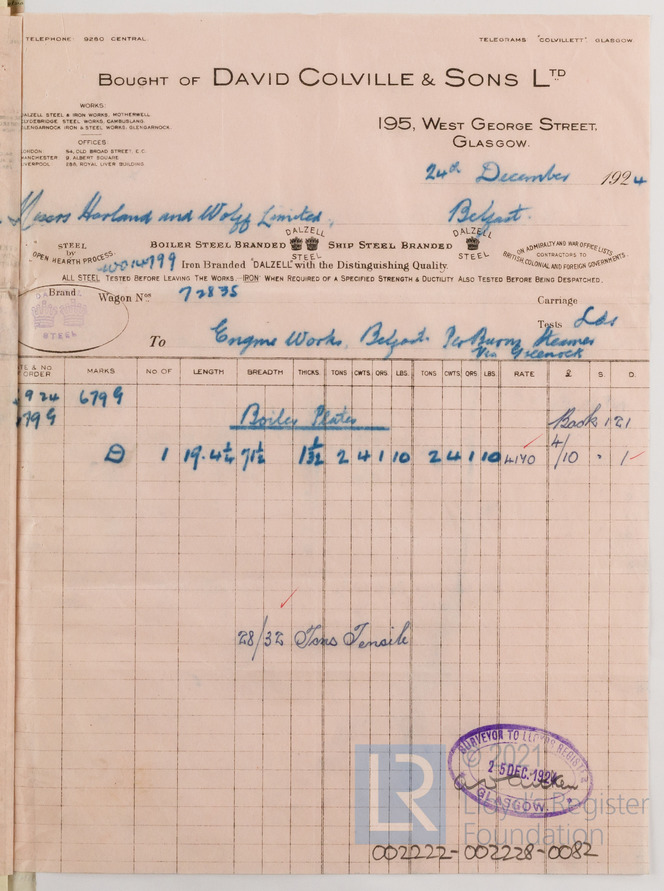 TELEPHONE 9260 CENTRAL.
TELEGRAMS "COLVILLETT" GLASGOW
BOUGHT OF DAVID COLVILLE & SONS LTD
WORKS:
DALZELL STEEL & IRON WORKS, MOTHERWELL
CLYDEBRIDGE STEEL WORKS, CAMBUSLANG.
GLENGARNOCK IRON & STEEL WORKS, GLENGARNOCK.
195, WEST GEORGE STREET.
GLASGOW.
OFFICES:
LONDON 54, OLD BROAD STREET, E.C.
MANCHESTER 9, ALBERT SQUARE
LIVERPOOL 255, ROYAL LIVER BUILDING
24th December 1924
Messrs Harland and Wolff Limited, Belfast.
STEEL
by
OPEN HEARTH PROCESS
BOILER STEEL BRANDED DALZELL STEEL SHIP STEEL BRANDED DALZELL STEEL
ON ADMIRALTY AND WAR OFFICE LISTS,
CONTRACTORS TO
BRITISH, COLONIAL AND FOREIGN GOVERNMENTS.
Iron Branded "DALZELL" with the Distinguishing Quality.
ALL STEEL TESTED BEFORE LEAVING THE WORKS. IRON WHEN REQUIRED OF A SPECIFIED STRENGTH & DUCTILITY ALSO TESTED BEFORE BEING DESPATCHED.
Brand
DALZELL
STEEL
Wagon Nos. 72835
Carriage
Tests
To Engine Works, Belfast. Per Burns Steamer
Via Greenock
& NO ORDER MARKS NO OF LENGTH BREADTH THICKS. TONS CWTS. QRS. LBS. TONS CWTS. QRS. LBS. RATE £ S. D.
924 679G
79G
Boiler Plates
Book 121
4/
D 1 19.4¼ 71½ 1 1/32 2 4 1 10 2 4 1 10 /10 " 1
28/32 Tons Tensile
SURVEYOR TO LLOYD'S REGISTER
25 DEC. 1924
GLASGOW.
© 2021
LR
Lloyd's Register
Foundation
002222-002228-0082